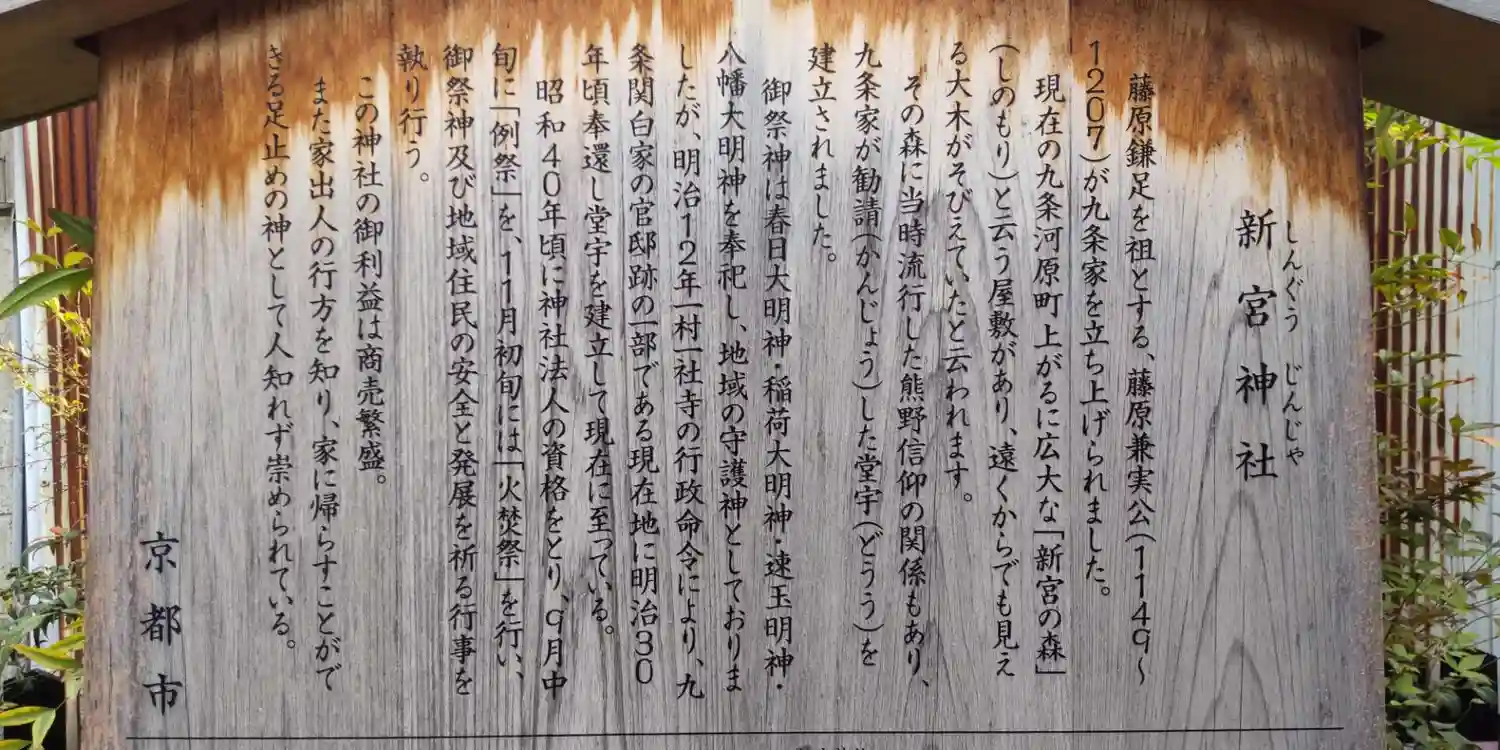 しんぐう じんじゃ
新宮神社
藤原鎌足を祖とする、藤原兼実公(1149〜
1207)が九条家を立ち上げられました。
現在の九条河原町上がるに広大な「新宮の森」
(しのもり)と云う屋敷があり、遠くからでも見え
る大木がそびえていたと云われます。
その森に当時流行した熊野信仰の関係もあり、
九条家が勧請(かんじょう)した堂宇(どうう)を
建立されました。
御祭神は春日大明神・稲荷大明神・速玉明神・
八幡大明神を奉祀し、地域の守護神としておりま
したが、明治12年一村一社寺の行政命令により、九
条関白家の官邸跡の一部である現在地に明治30
年頃奉還し堂宇を建立して現在に至っている。
昭和40年頃に神社法人の資格をとり、9月中
旬に「例祭」を、11月初旬には「火焚祭」を行い、
御祭神及び地域住民の安全と発展を祈る行事を
執り行う。
この神社の御利益は商売繁盛。
また家出人の行方を知り、家に帰らすことがで
きる足止めの神として人知れず崇められている。
京都市